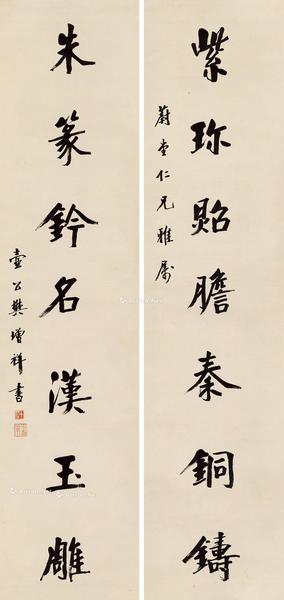 紫珎貽膽秦銅鑄
蔚堂仁兄雅屬
朱篆鈐名漢玉雕
壺公樊增祥書